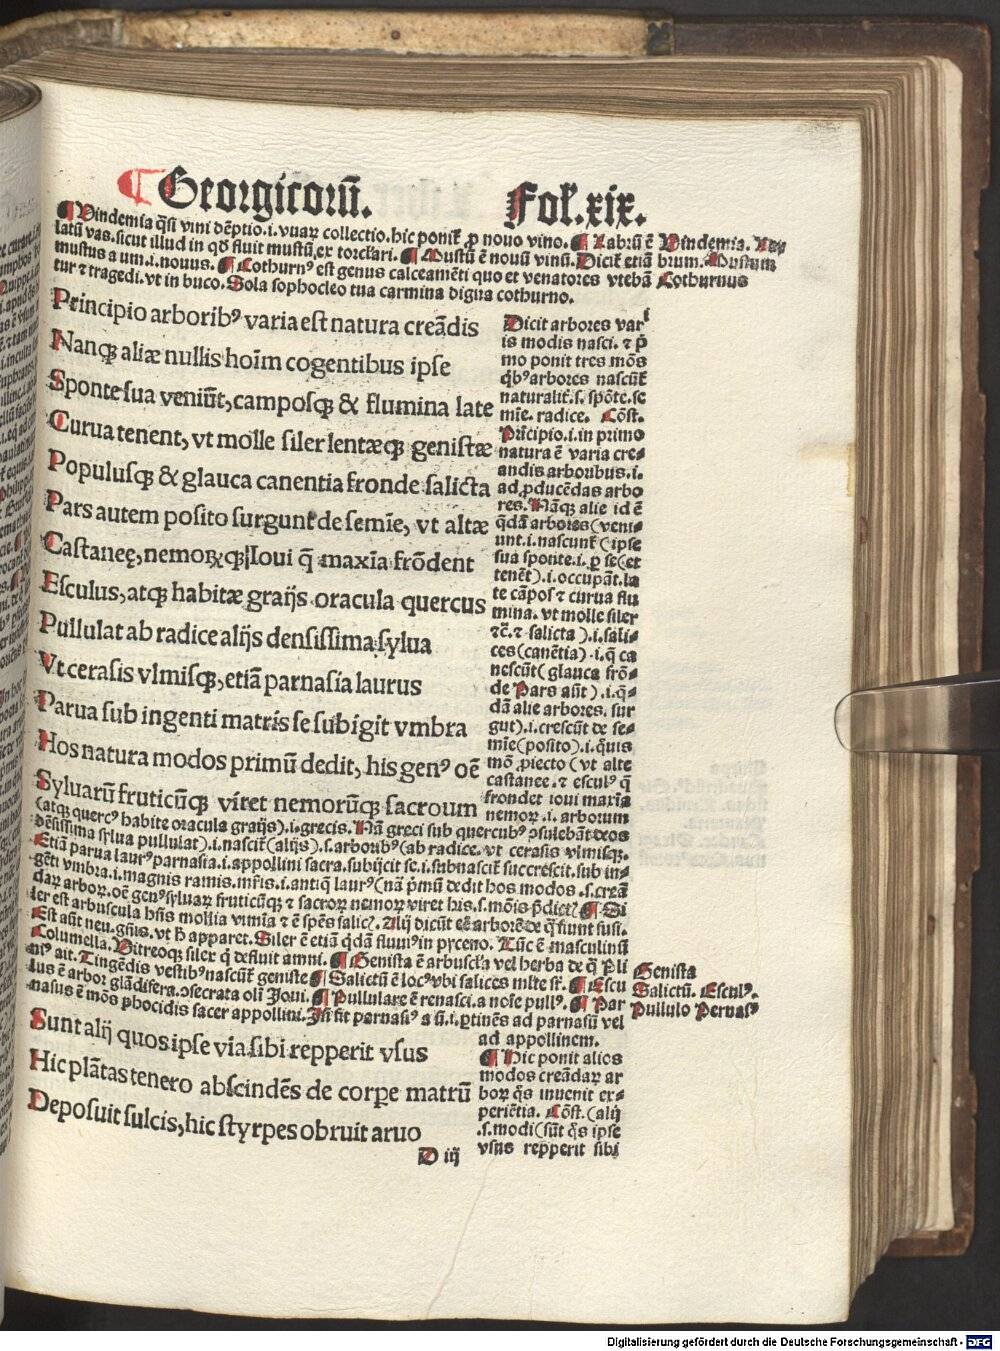 ¶ Georgicorū. Fol. xix.
¶ Vindemia q̄si vini dēptio.i.vuaꝝ collectio.hic poniť ꝓ nouo vino. ¶ Labrū ē Vindemia.
latū vas.sicut illud in qđ fluit mustū,ex torclari. ¶ Mustū ē nouū vinū. Dicit̄ etiā brum. Mustum
mustus a um.i.nouus. ¶ Cothurnꝰ est genus calceamēti quo et venatores vtebā Cothurnus
tur ⁊ tragedi.vt in buco. Sola sophocleo tua carmina digna cothurno.
Principio arboribꝰ varia est natura creādis
Nanqꝫ aliæ nullis hoīm cogentibus ipſe
Sponte ſua veniūt, campoſqꝫ & flumina late
Curua tenent, vt molle ſiler lentæqꝫ geniſtæ
Populuſqꝫ & glauca canentia fronde ſalicta
Pars autem poſito ſurgunt de ſemīe, vt altæ
Caſtaneę, nemoꝝqꝫ Ioui q̄ maxīa frōdent
Eſculus, atqꝫ habitæ graijs oracula quercus
Pullulat ab radice alijs denſiſſima ſylua
Vt ceraſis vlmiſqꝫ, etiā parnaſia laurus
Parua ſub ingenti matris ſe ſubigit vmbra
Hos natura modos primū dedit, his genꝰ oē
Syluarū fruticūqꝫ viret nemorūqꝫ ſacroum
Dicit arbores vari
is modis nasci. ⁊ p̄
mo ponit tres mōs
q̄bꝰ arbores nascūt̄
naturalit̄.s. spōte.se
mīe. radice. Cōst.
Prīcipio.i.in primo
natura ē varia cre-
andis arboribus.i.
ad ꝓducēdas arbo
res. Nāqꝫ alie id ē
q̄dā arbores (veni-
unt.i.nascunt̄ (ipse
sua sponte.i. ꝑ se (et
tenēt).i.occupāt.la
te cāpos ⁊ curua flu
mina. vt molle siler
⁊c̄.⁊ salicta ).i.sali-
ces (canētia) .i.q̄ ca
nescūt (glauca frō-
de Pars aūt ).i.q̄-
dā alie arbores. sur
gut).i.crescūt de se-
mīe (posito).i.q̄uis
mō ꝓiecto (vt alte
castanee. ⁊ esculꝰ q̄
frondet ioui maxīa
nemoꝝ.i. arborum
(atqꝫ quercꝰ habite oracula graijs).i.grecis. Nā greci sub quercubꝰ ↄsulebāt deos
dēsissima sylua pullulat).i.nascit̄ (alijs).s.arboribꝰ (ab radice. vt cerasis vlmisqꝫ.
Etiā parua laurꝰ parnasia.i.appollini sacra.subijcit se.i.subnascit̄ succrescit.sub in-
gēti vmbra.i.magnis ramis.mr̄is.i.antiq̄ laurꝰ (nā p̄mū dedit hos modos .s.creā
daꝝ arboꝝ.oē genꝰ syluaꝝ fruticūqꝫ ⁊ sacroꝝ nemoꝝ viret his.s.mōis p̄dict̄ ¶ Si
ler est arbuscula hn̄s mollia vimīa ⁊ ē spēs salic̄. Alij dicūt eē arborē de q̄ fiunt fusi.
Est aūt neu.gn̄is.vt h̄ apparet. Siler ē etiā q̄dā fluuiꝰ in pyceno. Tūc ē masculinū
Columella. Vitreoqꝫ siler q̄ defluit amni. ¶ Genista ē arbuscl̄a vel herba de q̄ Pli Genista
niꝰ ait. Tingēdis vestibꝰ nascūt̄ geniste ¶ Salictū ē locꝰ vbi salices ml̄te st̄. ¶ Escu Salictū. Esculꝰ.
lus ē arbor glādifera.ↄsecrata oli Ioui. ¶ Pullulare ē renasci.a noīe pullꝰ. ¶ Par Pullulo Pernasꝰ
nasus ē mōs phocidis sacer appollini. In̄ fit parnasiꝰ a ū.i.ꝑtinēs ad parnasū vel
ad appollinem.
Sunt alij quos ipſe via ſibi repperit vſus
Hic plātas tenero abſcindēs de corꝑe matrū
Depoſuit ſulcis, hic ſtyrpes obruit aruo
¶ Hic ponit alios
modos creādaꝝ ar
boꝝ q̄s inuenit ex-
periētia. Cōst. (alij
.s.modi (sūt q̄s ipse
vsus repperit sibi
D iij
Digitalisierung gefördert durch die Deutsche Forschungsgemeinschaft - DFG